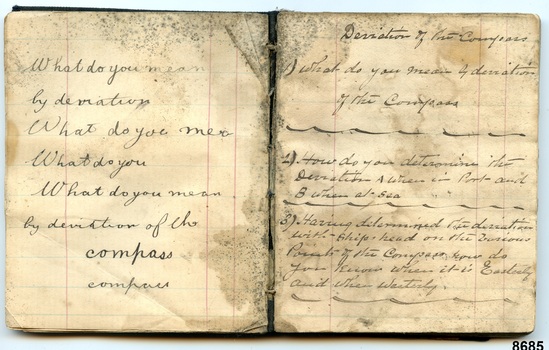 What do you mean
by deviation
What do you mea
What do you
What do you mean
by deviation of the
compass
compass
Deviation of the Compass
1) What do you mean by deviation
of the Compass
2) How do you determine the
Deviation A when in Port and
B when at Sea
3) Having determined the deviation
with Ships head on the various
Points of the Compass how do
you know when it is Easterly
and when Westerly.
8685